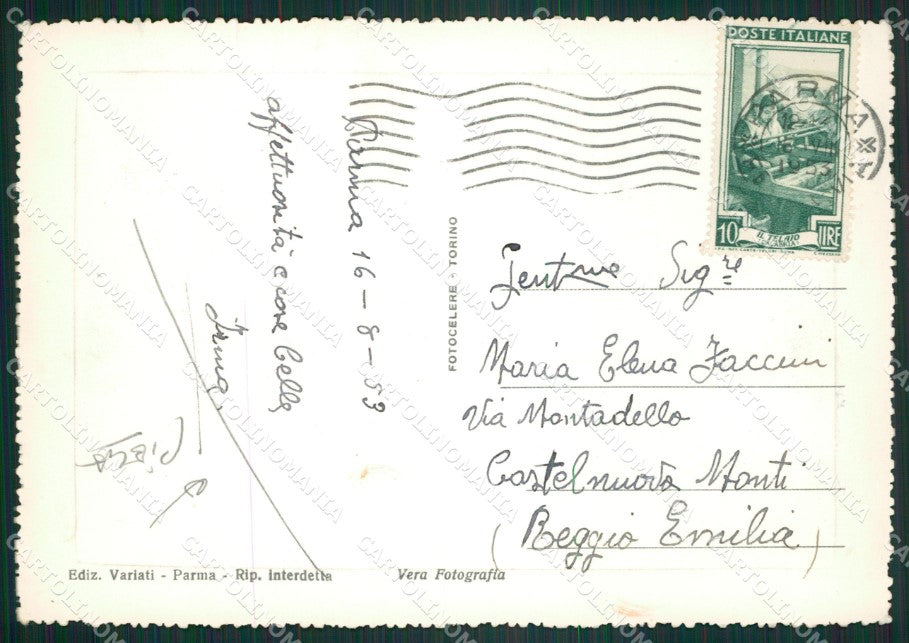 Parma 16-8-53
affettuosità e cose belle
Irma
POSTE ITALIANE
10 LIRE
IL TELAIO
PARMA
FOTOCELERE - TORINO
Gent.me Sig.re
Maria Elena Zaccini
Via Montadello
Castelnuovo Monti
(Reggio Emilia)
Ediz. Variati - Parma - Rip. Interdetta
Vera Fotografia
CARTOLINOMANIA